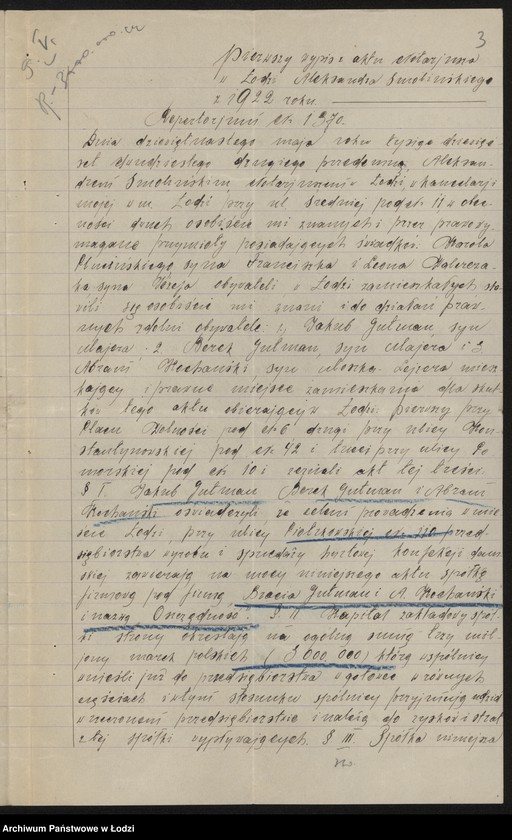 3
Pierwszy wypis z aktu notarjusza
w Łodzi Aleksandra Smolińskiego
z 1922 roku.
Repertorjum № 1370.
Dnia dziewiętnastego maja roku tysiąc dziewięć-
set dwudziestego drugiego przedemną, Aleksan-
drem Smolińskim, notarjuszem w Łodzi, w kancelarji
mojej w m. Łodzi przy ul. Średniej pod № 11 w obec-
ności dwuch osobiście mi znanych i przez prawo wy-
magane przymioty posiadających świadków: Karola
syna Franciszka i Leona Walcza-
ka syna Józefa obywateli w Łodzi zamieszkałych sta-
wili się osobiście mi znani i do działań praw-
nych zdolni obywatele: 1, Jakub Gutman, syn
Majera 2, Berek Gutman, syn Majera i 3,
Abram Kochański, syn Moszka-Lejzera miesz-
kający i prawne miejsce zamieszkania dla skut-
ków tego aktu obierający w Łodzi: pierwszy przy
Placu Wolności pod № 6 drugi przy ulicy Kon-
stantynowskiej pod № 42 i trzeci przy ulicy Po
morskiej pod № 10 i zeznali akt tej treści:
§ I. Jakub Gutman, Berek Gutman i Abram
Kochański oświadczyli, że celem prowadzenia w mie-
ście Łodzi, przy ulicy Piotrkowskiej № przed-
siębiorstwa wyrobu i sprzedaży hurtowej konfekcji dam-
skiej zawierają na mocy niniejszego aktu spółkę
firmową pod firmą "Bracia Gutman i A. Kochański
i nazwą Oszczędność". § II Kapitał zakładowy spół-
ki strony określają na ogólną sumę trzy mil-
jony marek polskich (3 000 000) którą wspólnicy
wnieśli już do przedsiębiorstwa w gotowce w równych
częściach i w tym stosunku spólnicy przyjmują udział
w wymienionem przedsiębiorstwie i należą do zysków i strat
z tej spółki wypływających. § III. Spółka niniejsza
Archiwum Państwowe w Łodzi